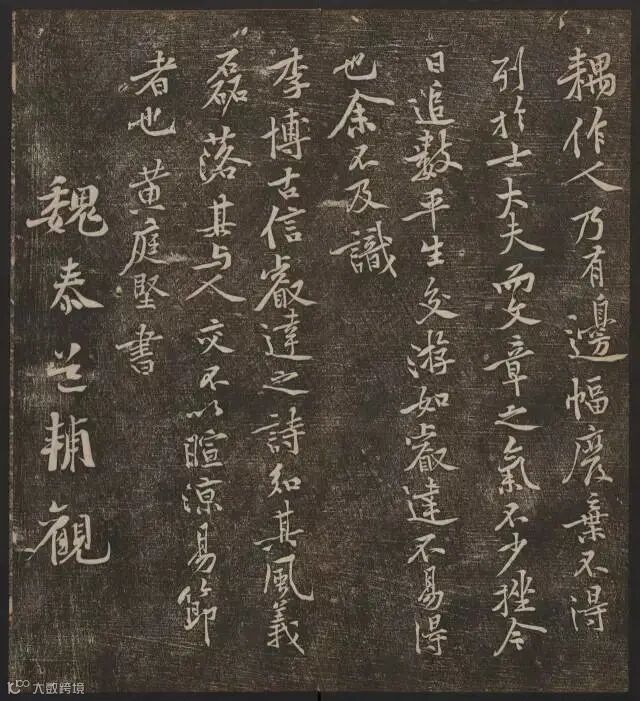 耦作人乃有邊幅廢棄不得
列於士大夫而文章之氣不少挫今
日追數平生交游如叡達不易得
也余不及識
李博古信叡達之詩知其風義
磊落其与人交不以暄涼易節
者也黄庭堅書
魏泰道輔觀
大数跨境